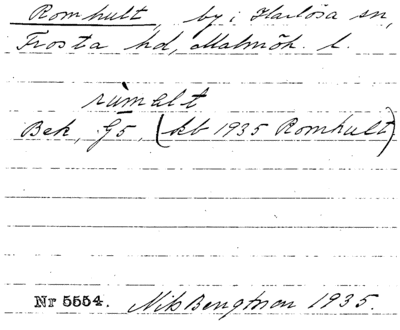 Romhult, by i Harlösa sn,
Frosta hd, Malmöh. l.
rùmelt
Bek, G5, (kb 1935 Romhult)
Nr 5554. Nils Bengtsson 1935.